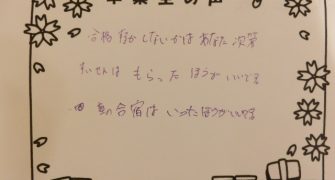 卒業生の声
合格するかしないかはあなた次第
すいせんは もらった ほうが いいです
夏合宿は いったほうがいいです